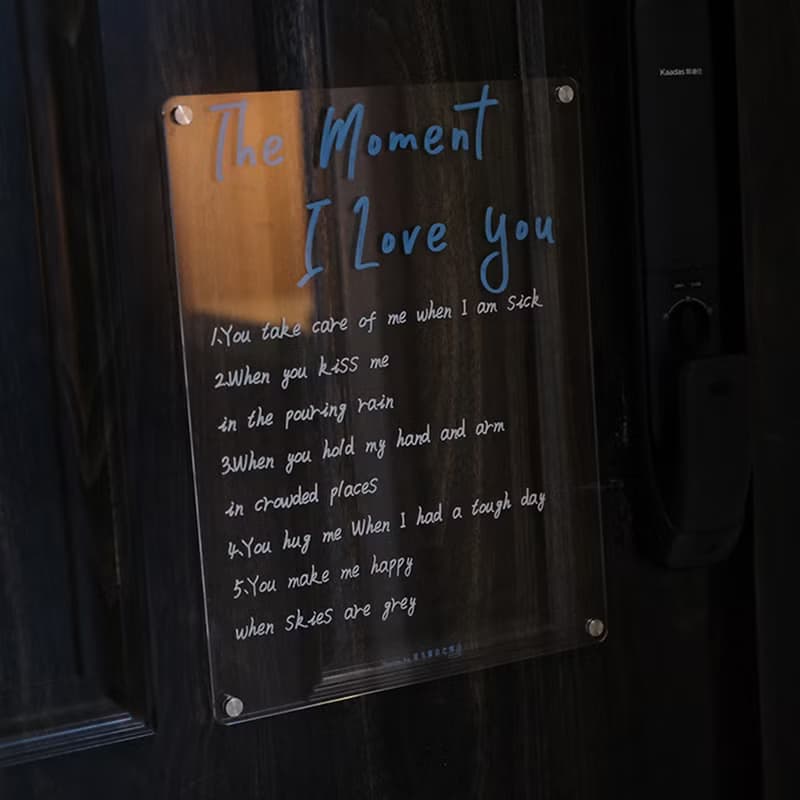 The Moment
I Love You
1.You take care of me when I am sick
2.When you kiss me
in the pouring rain
3.When you hold my hand and arm
in crowded places
4.You hug me When I had a tough day
5.You make me happy
when skies are grey
Kaadas